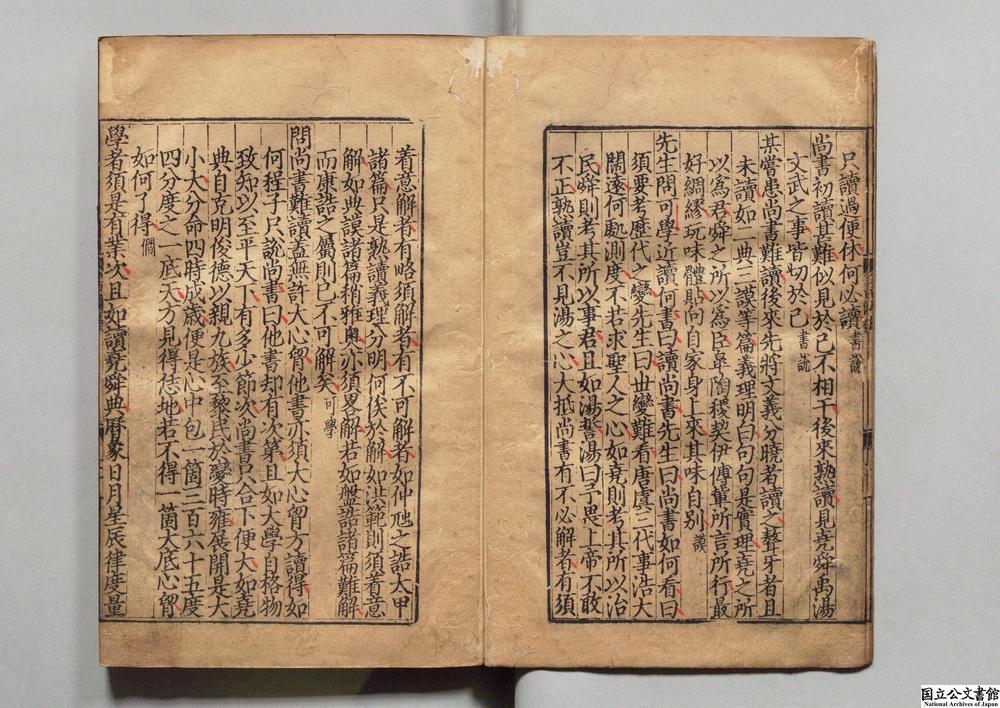 只讀過便休何必讀書說
尚書初讀甚難似見於己不相干後來熟讀見堯舜禹湯
文武之事皆切於己書說
某嘗患尚書難讀後來先將文義分曉者讀之聱牙者且
未讀如二典三謨等篇義理明白句句是實理堯之所
以為君舜之所以為臣皐陶稷契伊傅軰所言所行最
好綢繆玩味體貼向自家身上來其味自別謨
先生問可學近讀何書曰讀尚書先生曰尚書如何看曰
須要考歷代之變先生曰世變難看唐虞三代事浩大
闊遠何處測度不若求聖人之心如堯則考其所以治
民舜則考其所以事君且如湯誓湯曰予畏上帝不敢
不正熟讀豈不見湯之心大抵尚書有不必解者有須
着意解者有略須解者有不可解者如仲虺之誥太甲
諸篇只是熟讀義理分明何俟於解如洪範則須着意
解如典謨諸篇稍雅奧亦須畧解若如盤誥諸篇難解
而康誥之屬則已不可解矣可學
問尚書難讀盖無許大心胷他書亦須大心胷方讀得如
何程子只說尚書曰他書却有次第且如大學自格物
致知以至平天下有多少節次尚書只合下便大如堯
典自克明俊德以親九族至黎民於變時雍展開是大
小大分命四時成歲便是心中包一箇三百六十五度
四分度之一底天方見得恁地若不得一箇大底心胷
如何了得僩
學者須是有業次且如讀堯舜典曆象日月星辰律度量